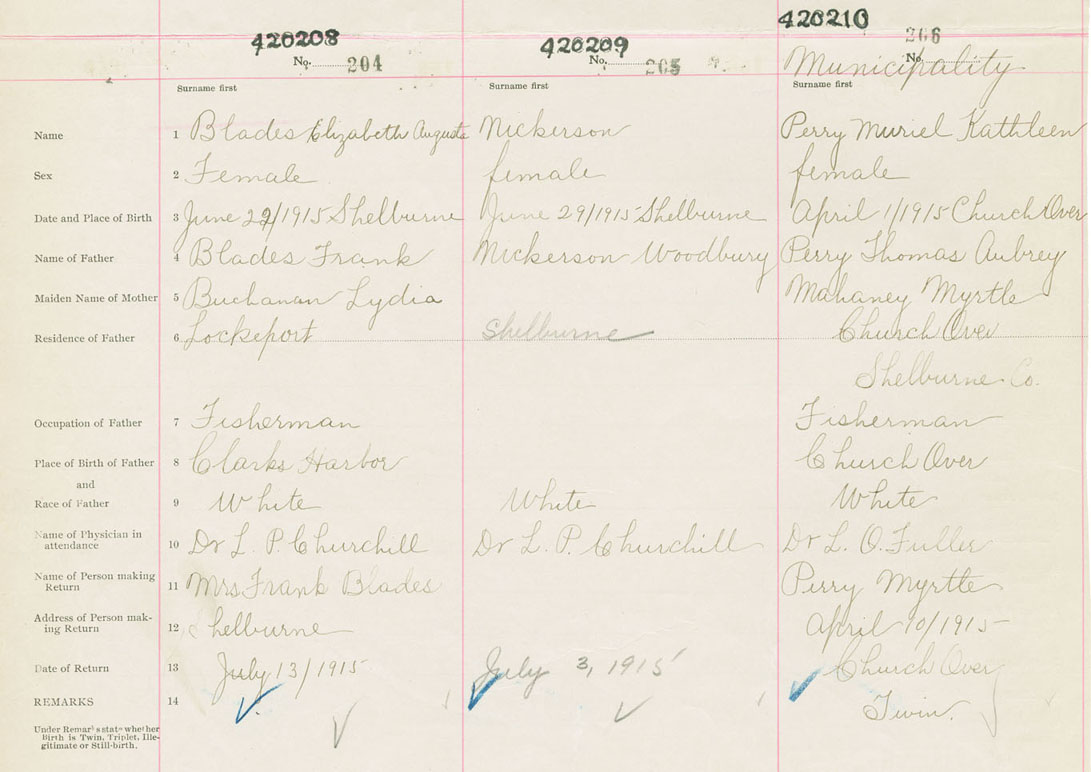 420208 420209 420210
No. 204 No. 205 No. 206
Municipality
Surname first Surname first Surname first
Name 1 Blades Elizabeth Augusta Nickerson Perry Muriel Kathleen
Sex 2 Female female female
Date and Place of Birth 3 June 22/1915 Shelburne June 29/1915 Shelburne April 1/1915 Church Over
Name of Father 4 Blades Frank Nickerson Woodbury Perry Thomas Aubrey
Maiden Name of Mother 5 Buchanan Lydia Mahaney Myrtle
Residence of Father 6 Lockeport Shelburne Church Over
Shelburne Co.
Occupation of Father 7 Fisherman Fisherman
Place of Birth of Father 8 Clarks Harbor Church Over
and
Race of Father 9 White White White
Name of Physician in
attendance 10 Dr L. P. Churchill Dr L. P. Churchill Dr L. O. Fuller
Name of Person making
Return 11 Mrs Frank Blades Perry Myrtle
Address of Person mak-
ing Return 12 Shelburne April 10/1915
Date of Return 13 July 13/1915 July 3, 1915 Church Over
REMARKS 14 Twin.
Under Remarks state whether
Birth is Twin, Triplet, Ille-
gitimate or Still-birth.